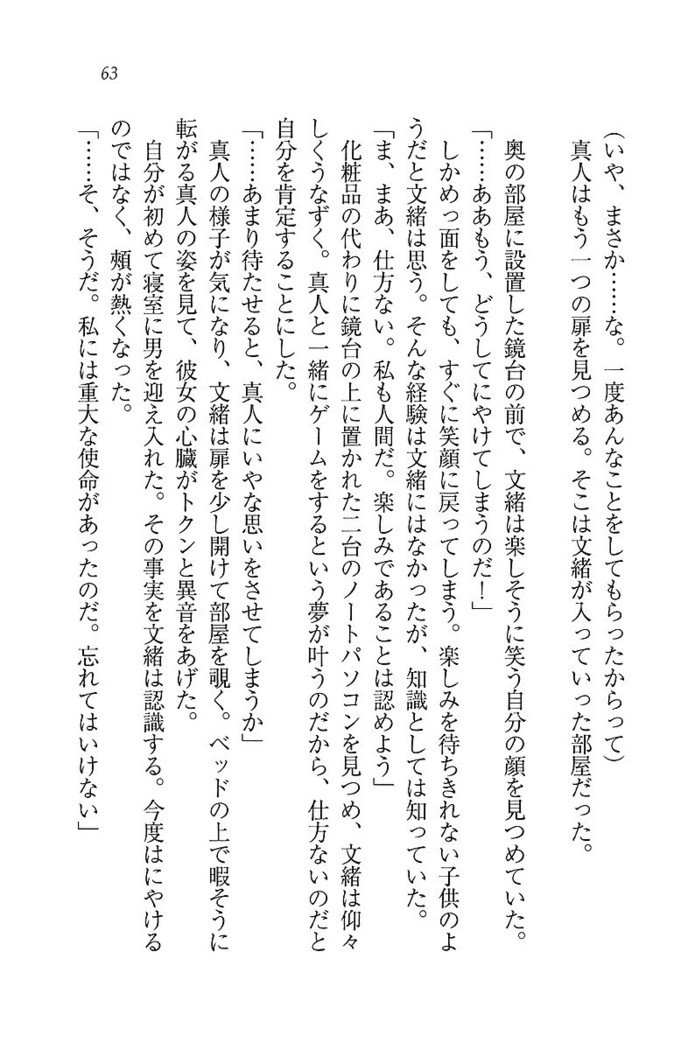 63
(いや、まさか……な。一度あんなことをしてもらったからって)
真人はもう一つの扉を見つめる。そこは文緒が入っていった部屋だった。
奥の部屋に設置した鏡台の前で、文緒は楽しそうに笑う自分の顔を見つめていた。
「……ああもう、どうしてにやけてしまうのだ!」
しかめっ面をしても、すぐに笑顔に戻ってしまう。楽しみを待ちきれない子供のよ
うだと文緒は思う。そんな経験は文緒にはなかったが、知識としては知っていた。
「ま、まあ、仕方ない。私も人間だ。楽しみであることは認めよう」
化粧品の代わりに鏡台の上に置かれた二台のノートパソコンを見つめ、文緒は仰々
しくうなずく。真人と一緒にゲームをするという夢が叶うのだから、仕方ないのだと
自分を肯定することにした。
「……あまり待たせると、真人にいやな思いをさせてしまうか」
真人の様子が気になり、文緒は扉を少し開けて部屋を覗く。ベッドの上で暇そうに
転がる真人の姿を見て、彼女の心臓がトクンと異音をあげた。
自分が初めて寝室に男を迎え入れた。その事実を文緒は認識する。今度はにやける
のではなく、頬が熱くなった。
「……そ、そうだ。私には重大な使命があったのだ。忘れてはいけない」